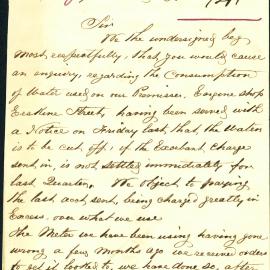 Sir
We the undersigned beg
most respectfully, that you would cause
an enquiry, regarding the Consumption
of Water used on our Premises, Engine shop
Erskine Street, having been served with
a Notice on Friday last, that the Water
is to be cut off, if the Exorbant Charge
sent in, is not settled immediately for
last Quarter. We Object to paying
the last acct sent, being charged greatly in
Excess over what we use
The Meter we have been using having gone
wrong a few Months ago we receive orders
to get it looked to, we have done so, after